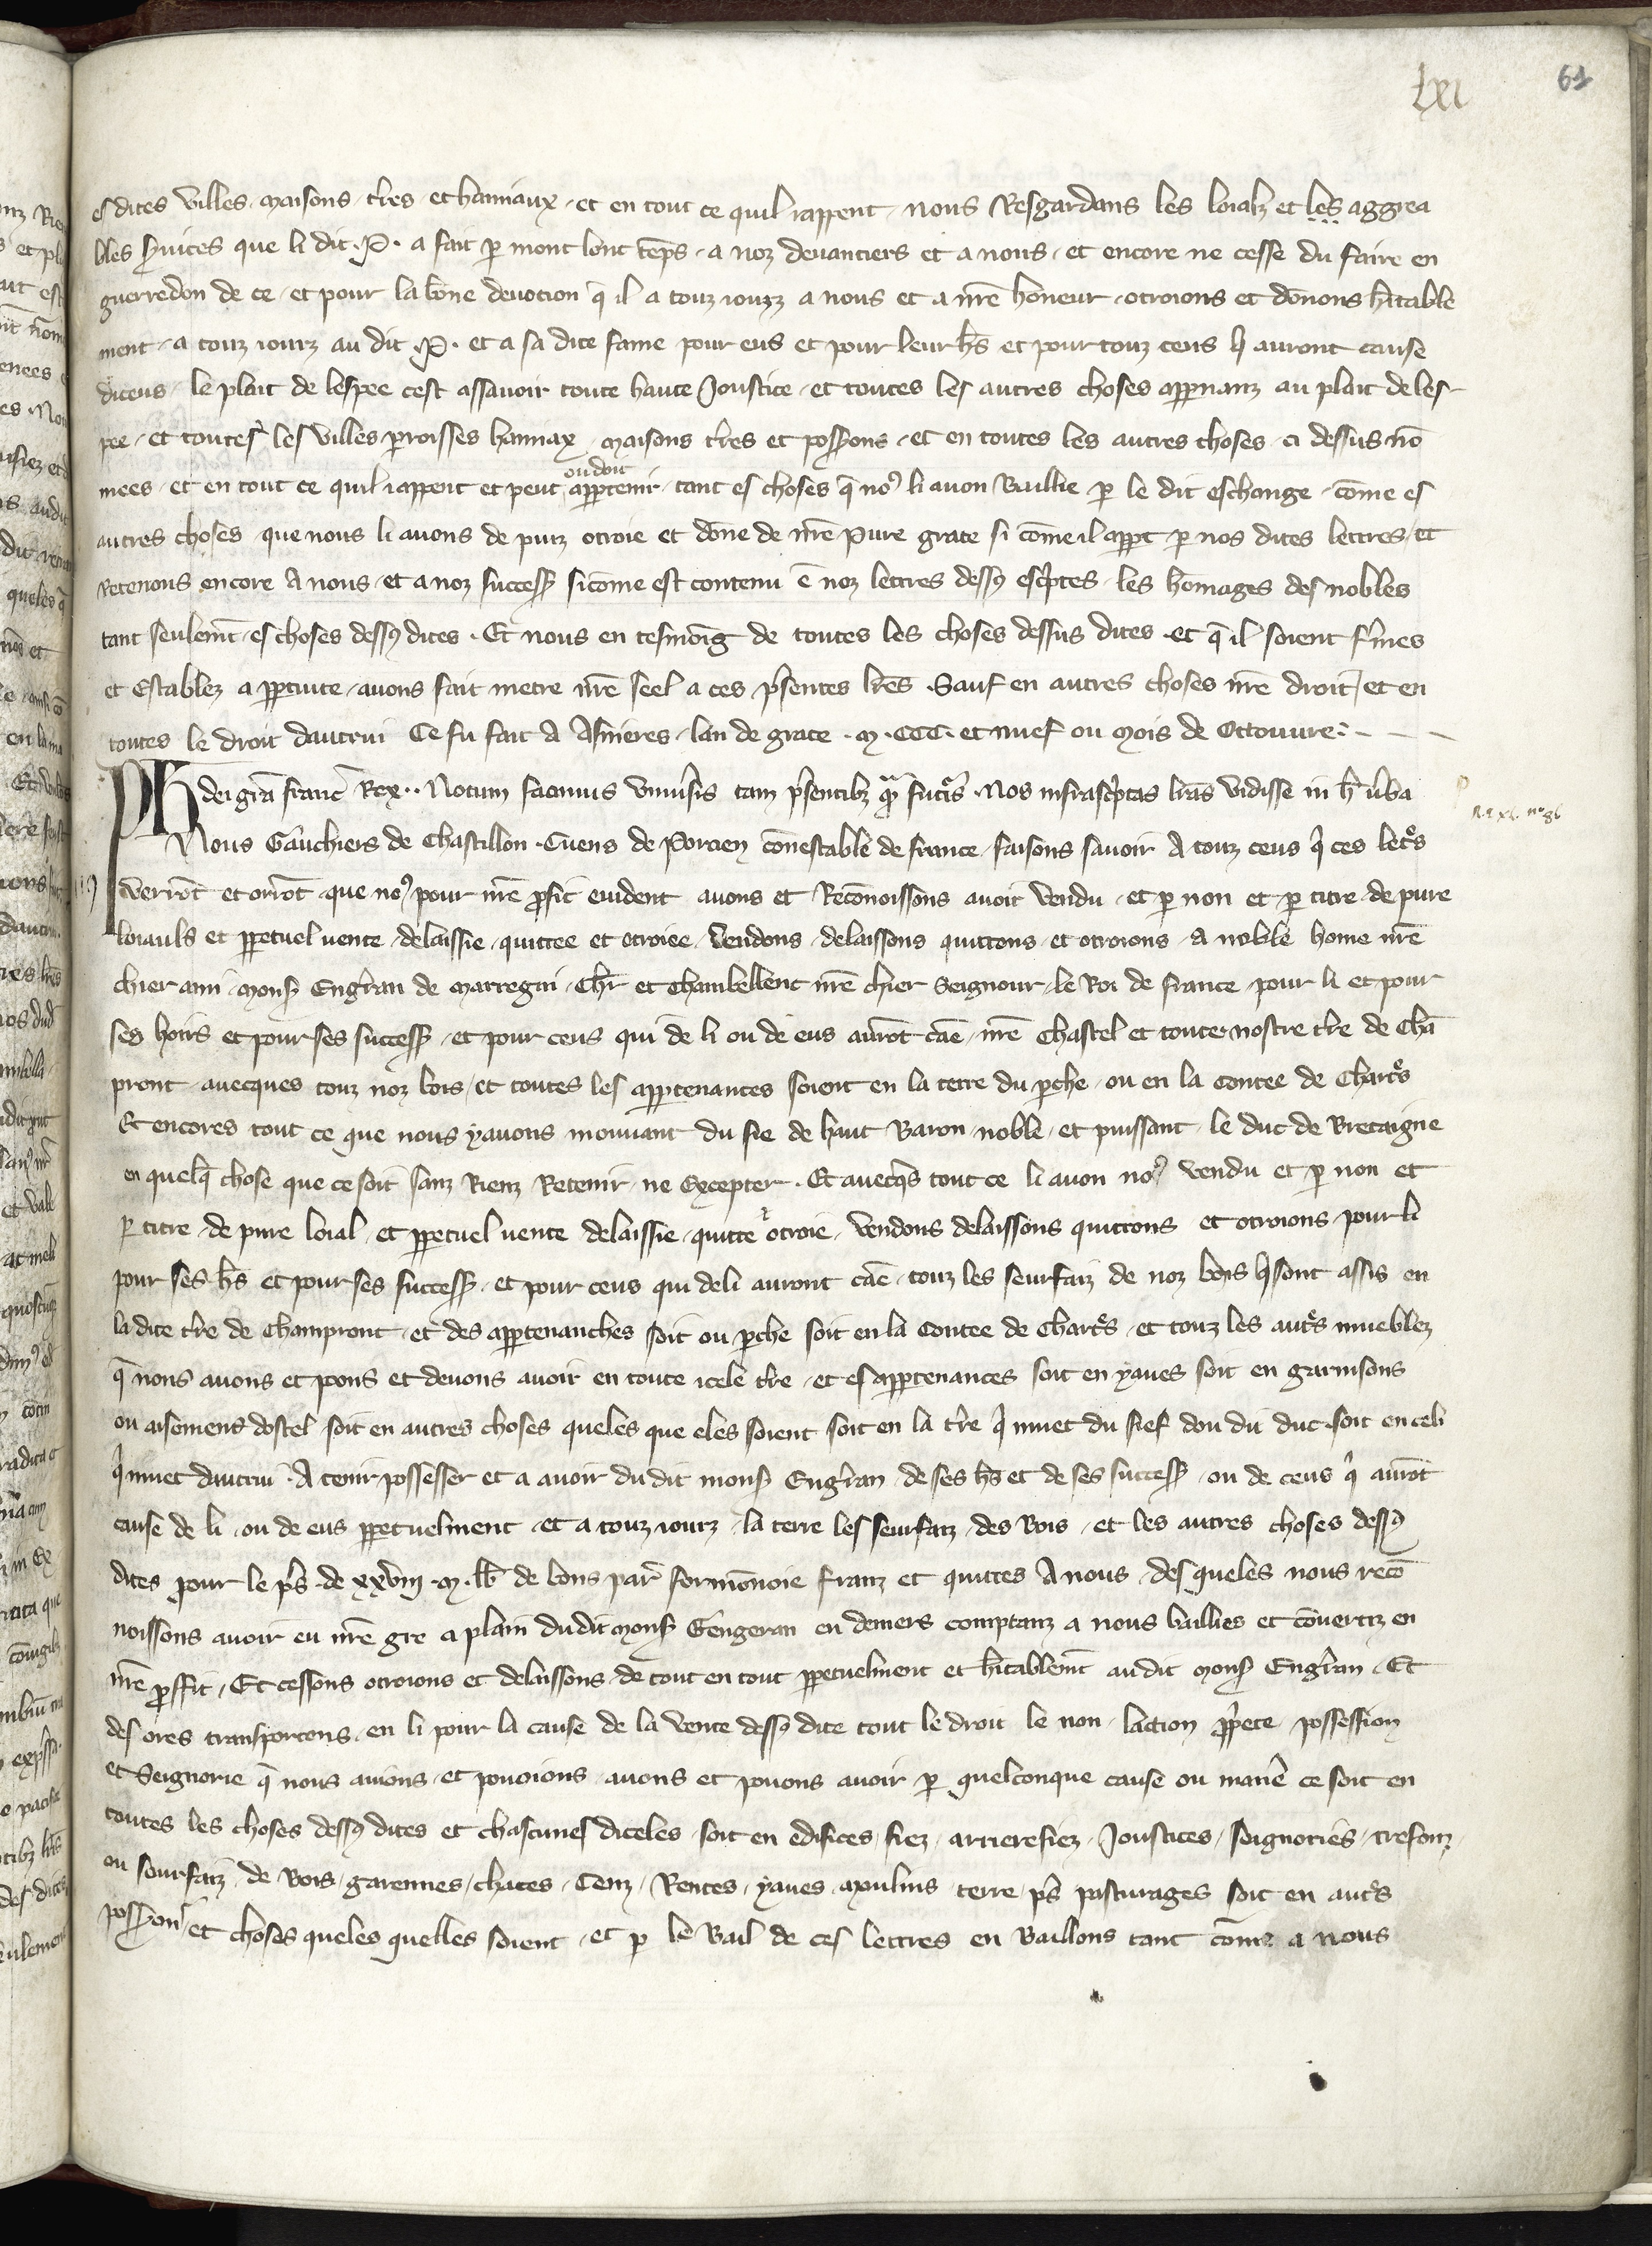 lxi
61
es dites villes, maisons, tˀres et hamiaux, et en tout ce quil i appent, nous Resgardans les loialz et les aggrea
bles s̾uices que li dit .P. a fait p̱ mont lont tẽps, a noz deuanciers et a nous, et encore ne cesse du faire en
guerredon de ce, et pour la bõne deuocion q̃ il a touz iourz a nous et a nr̃e honeur, otroions et dõnons h̾itable
ment, a touz iourz au dit .P. et a sa dite fame pour eus et pour leur hˀs et pour touz ceus q̾ auront cause
diceus, le plait de lespee cest assauoir toute haute Joustice, et toutes les autres choses aꝑꝑtenanz au plait de les
pee, et toutes les villes ꝑroisses hamiax, maisons tˀres et poss̾ons, et en toutes les autres choses ci dessus nõ
mees, et en tout ce quil i appent et peut ou doit aꝑꝑtenir, tant es choses q̃ noꝰ li auon Baillie ꝑ le dit eschange, cõme es
autres choses que nous li auons de puiz otroie et dõne de nr̃e Pure grace si cõme il appt ꝑ nos dites lettres, et
Retenons encore A nous, et a noz success̾ sicõme est contenu ẽ noz lettres dessꝰ esc̾ptes, les hõmages des nobles
tant seulemẽt, es choses dessꝰ dites. Et nous en tesmoĩg de toutes les choses dessus dites, et q̃ il soient f̾mes
et Establez a ꝑꝑtuite, auons fait metre nr̃e seel a ces p̾sentes lr̃es. Sauf en autres choses nr̃e droit, et en
toutes le droit dautrui Ce fu fait A Asnieres, lan de grace .M.CCC. et nuef ou Mois de Ottouure:
PH dei gr̃a franc̾ Rex.. Notum facimus vniu̾sis tam p̾sentibꝫ qᵃm̃ futˀis. Nos infrasc̾ptas lr̃as vidisse in h̾ u̾ba
Nous Gauchiers de Chastillon. Cuens de Porcien cõnestable de france faisons sauoir A touz ceus q̾ ces letˀs
verrõt et orrõt, que noꝰ pour nr̃e ꝓfit euident auons et Recõnoissons auoir vendu, et ꝑ non et ꝑ titre de pure
loiauls et ꝑꝑetuel uente, delaissie, quittee et otroiee, vendons, delaissons quittons, et otroions, a noble home nr̃e
chier ami, Mons̾ Eng̾ran de Marregni, Ch̾r et chambellenc nr̃e chier Seignour, le Roi de france, pour li et pour
ses hoirs et pour ses success̾, et pour ceus qui de li ou de eus aurõt cãe, nr̃e Chastel et toute nostre tˀre de Chã
pront, auecques touz noz bois, et toutes les aꝑꝑtenances soient en la terre du ꝑche, ou en la contee de Chartˀs
Et encores tout ce que nous y auons mouuant du fie de haut Baron noble, et puissant, le duc de Bretaigne
en quelq̃ chose que ce soit sanz Rienz Retenir ne Excepter. Et auecq̃s tout ce li auon noꝰ vendu et ꝑ non et
ꝑ titre de pure loial, et ꝑꝑetuel uente delaissie, quitte ⁊ otroie, vendons delaissons quittons et otroions pour li
pour ses hˀs et pour ses success̾, et pour ceus qui de li auront cãe, touz les seurfaiz de noz bois q̾ sont assis en
la dite tˀre de Champront, et des aꝑꝑtenanches soit ou ꝑche soit en la Contee de Chartˀs, et touz les autˀs mueblez
q̃ nous auons et poõns et deuons auoir en toute icele tˀre, et es aꝑꝑtenances soit en yaues soit en garnisons
ou aisemens dostel soit en autres choses queles que eles soient soit en la tˀre q̾ muet du fief dou dit duc, soit en celi
q̾ muet dautrui. A tenir possesser et a auoir du dit mons̾ Eng̾ran, de ses hˀs et de ses success̾, ou de ceus q̾ aurõt
cause de li, ou de eus ꝑꝑetuelment, et a touz iourz, la terre les seurfaiz, des Bois, et les autres choses dessꝰ
dites pour le p̾s de xxviij .M. lb̾ de bons par̾ formõnoie franz et quittes A nous, des queles nous recõ
noissons auoir eu nr̃e gre a plain du dit Mons̾ Engerran en deniers comptanz a nous baillies et cõuertiz en
nr̃e ꝓffit, Et cessons otroions et delaissons de tout en tout ꝑꝑetuelment et h̾itablemẽt au dit Mons̾ Eng̾ran. Et
des ores transportons, en li pour la cause de la vente dessꝰ dite tout le droit le non, laction ꝓp̾ete, possession
et Seignorie q̃ nous auions, et pouoions auons et pouons auoir ꝑ quelconque cause ou maniẽ ce soit en
toutes les choses dessꝰ dites et chascunes diceles, soit en edifices, fiez, arrierefiez, Joustices, seignories, tresfonz,
ou sourfaiz, de Bois, garennes, chaces, Cenz, Rentes, yaues, Moulins terre, p̾s pasturages soit en autˀs
poss̾ons et choses queles quelles soient, et ꝑ le Bail de ces lettres en Baillons tant cõme a nous